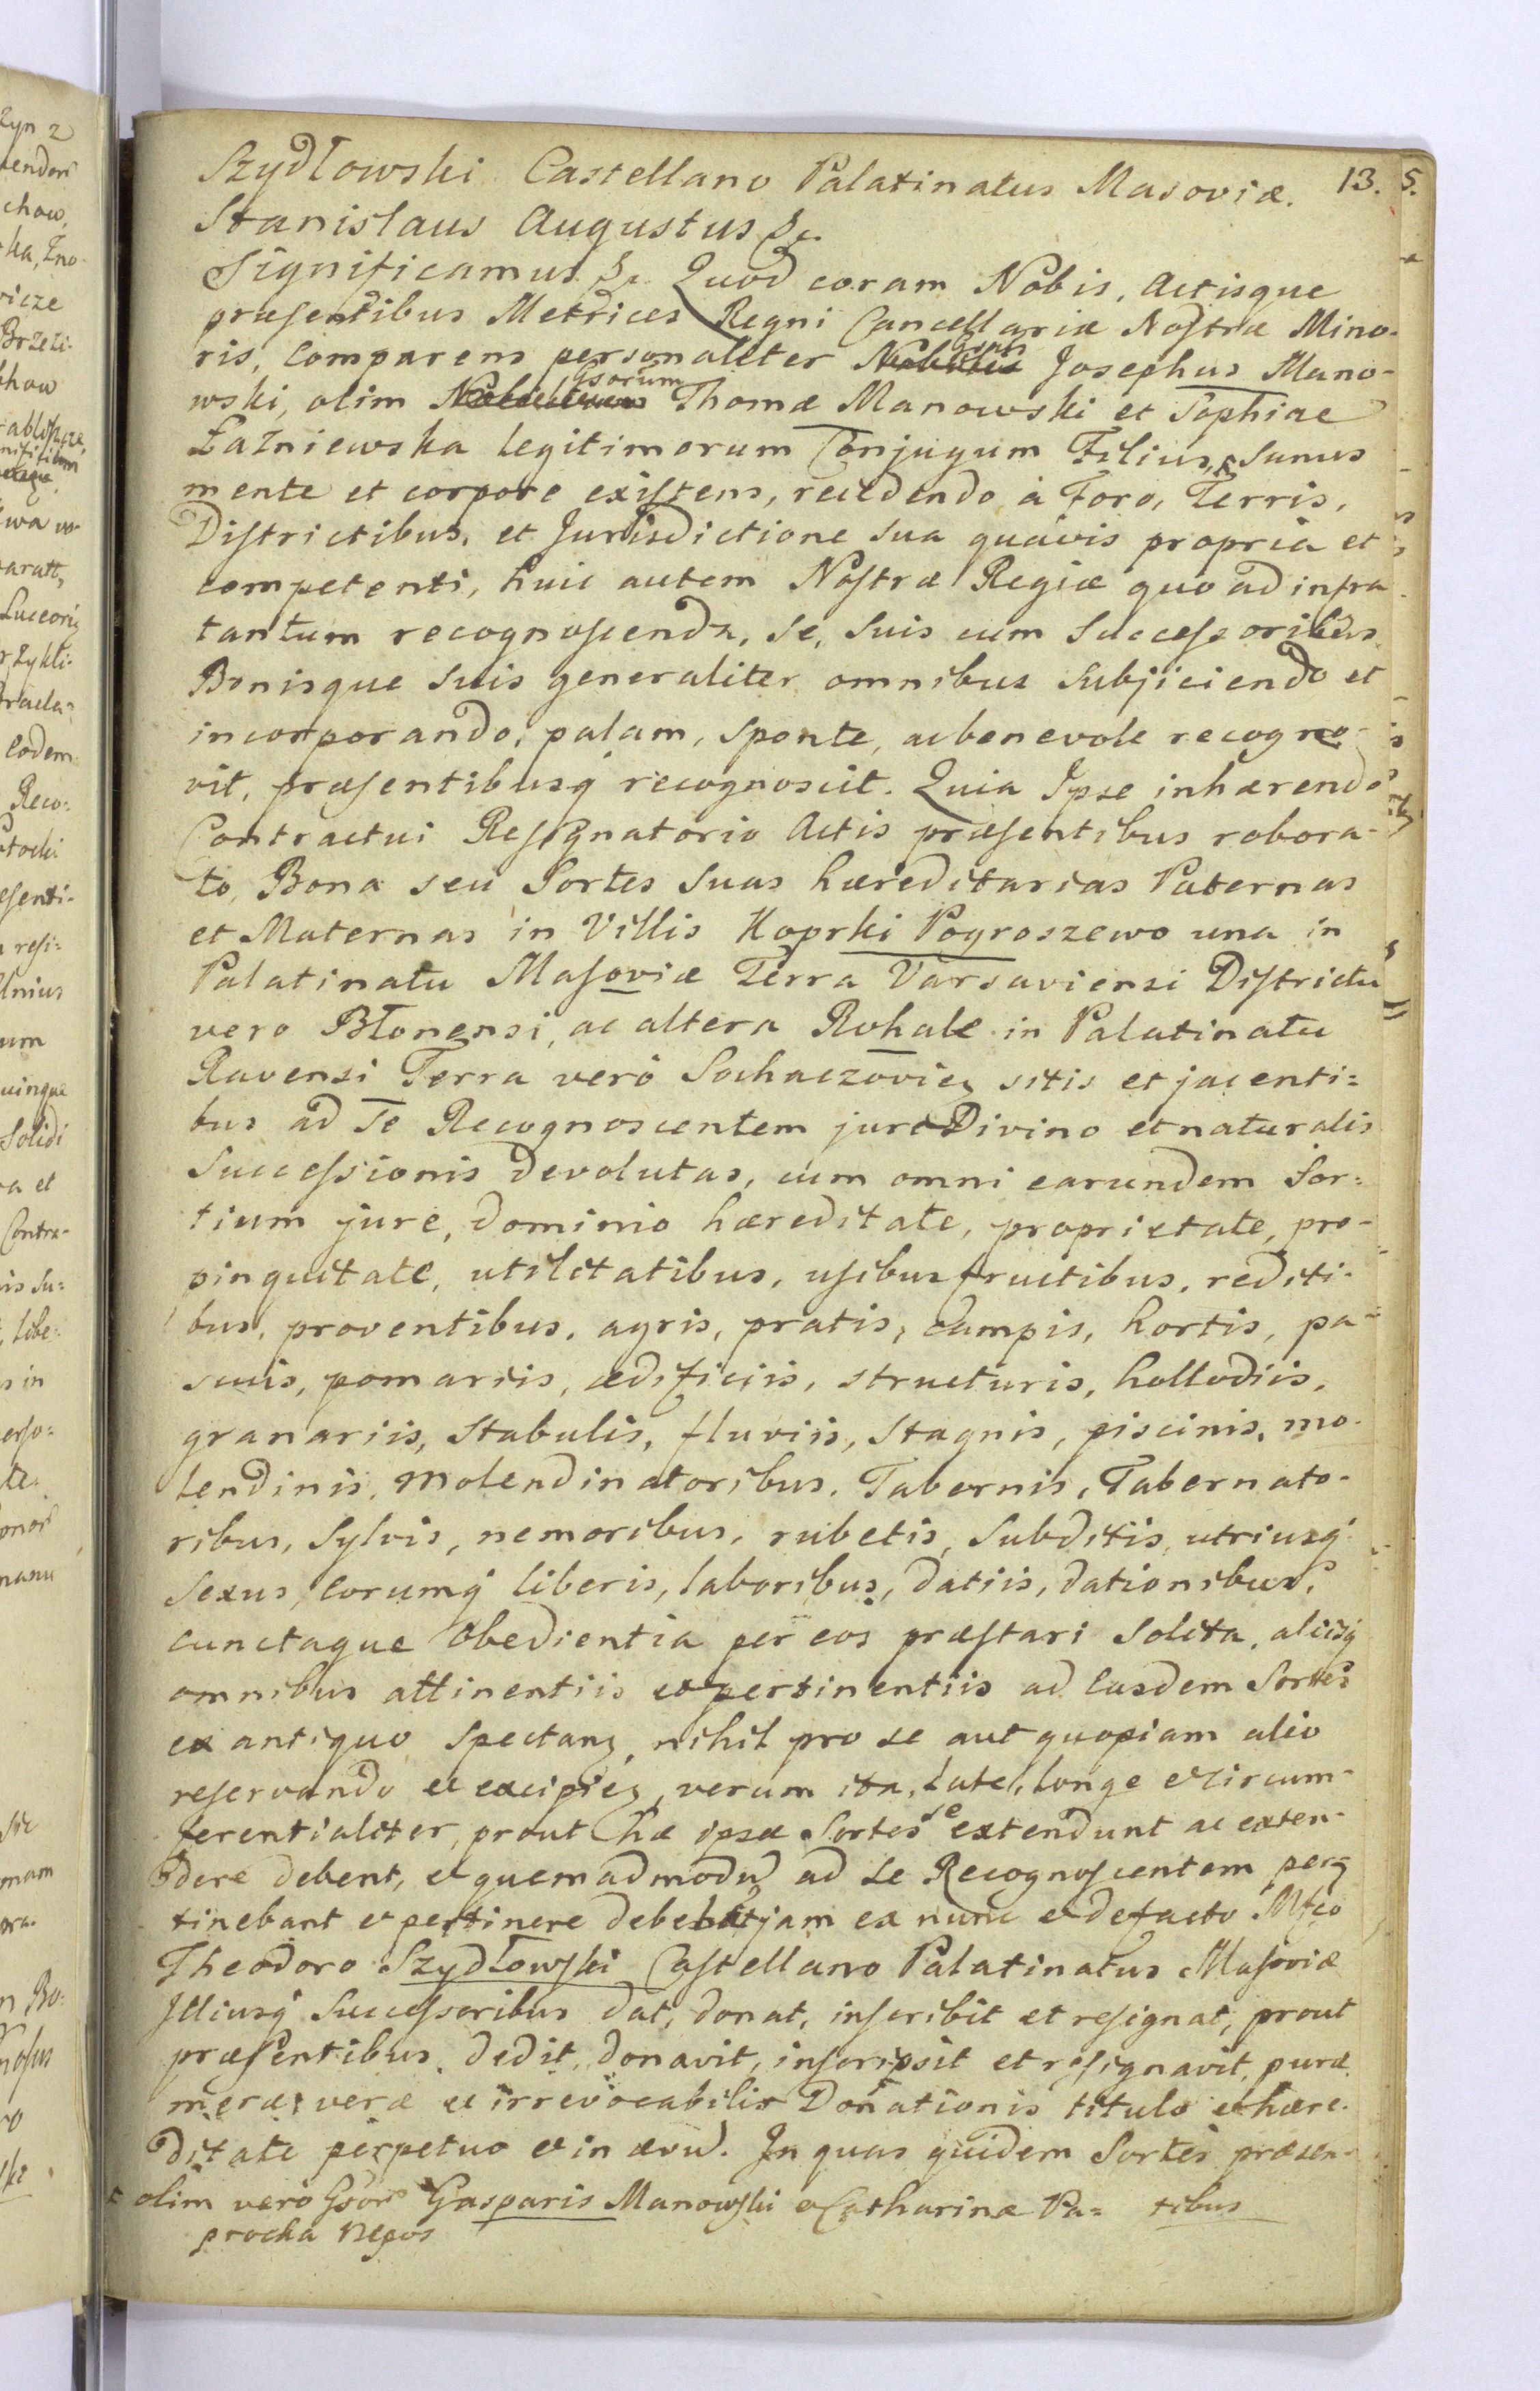 Szydłowski Castellano Palatinatus Masoviæ. 13.
Stanislaus Augustus &c.
Significamus &c. Quod coram Nobis, Actisque
præsentibus Metrices Regni Cancellariæ Nostræ Mino-
ris, Comparens personaliter Gsus Josephus Mano-
wski, olim Gsorum Thomæ Manowski et Sophiae
Łaźniewska legitimorum Conjugum Filius, + Sanus
mente et corpore existens, recedendo à Foro, Terris,
Districtibus, et Jurisdictione sua quavis propria et
competenti, huic autem Nostræ Regiæ quo ad infra
tantum recognoscenda, se, suis cum Successoribus
Bonisque suis generaliter omnibus subjiciendo et
incorporando, palam, sponte, ac benevole recogno-
vit, præsentibusq recognoscit. Quia Ipse inhærendo
Contractui Resignatorio Actis præsentibus robora-
to, Bona seu Sortes suas hæreditarias Paternas
et Maternas in Villis Koprki Pogroszewo una in
Palatinatu Masoviæ Terra Varsaviensi Districtu
vero Błonensi, ac altera Rokale in Palatinatu
Ravensi Terra verò Sochaczovien sitis et jacenti=
bus ad Se Recognoscentem jure Divino et naturalis
Successionis devolutas, cum omni earundem Sor=
tium jure, dominio hæreditate, proprietate, pro-
pinquitate, utilitatibus, usibus fructibus, rediti-
bus, proventibus, agris, pratis, campis, hortis, pa-
scuis, pomariis, ædificiis, structuris, hallodiis,
granariis, stabulis, fluviis, stagnis, piscinis, mo-
lendinis, Molendinatoribus, Tabernis, Tabernato-
ribus, Sylvis, nemoribus, rubetis, subditis, utriusq
Sexus, Eorumq liberis, laboribus, datiis, dationibus,
cunctaque Obedientia per eos præstari solita, aliisq
omnibus attinentiis et pertinentiis ad Easdem Sortes
ex antiquo spectan, nihil pro se aut quopiam alio
reservando et excipien, verum ita, late, longe et circum-
ferentialiter, prout hæ ipsæ Sortes se extendunt ac exten-
dere debent, et quemadmodu ad se Recognoscentem per=
tinebant et pertinere debebat jam ex nunc et de facto Mfco
Theodoro Szydłowski Castellano Palatinatus Masoviæ
Illiusq Successoribus dat, donat, inscribit et resignat, prout
præsentibus dedit, donavit, inscripsit et resignavit, puræ
meræ, veræ et irrevocabilis Donationis titulo et hære-
ditate perpetuo et in ævu. In quas quidem Sortes præsen-
+ olim verò Gsor Gasparis Manowski et Catharinæ Pa= tibus
procka Nepos